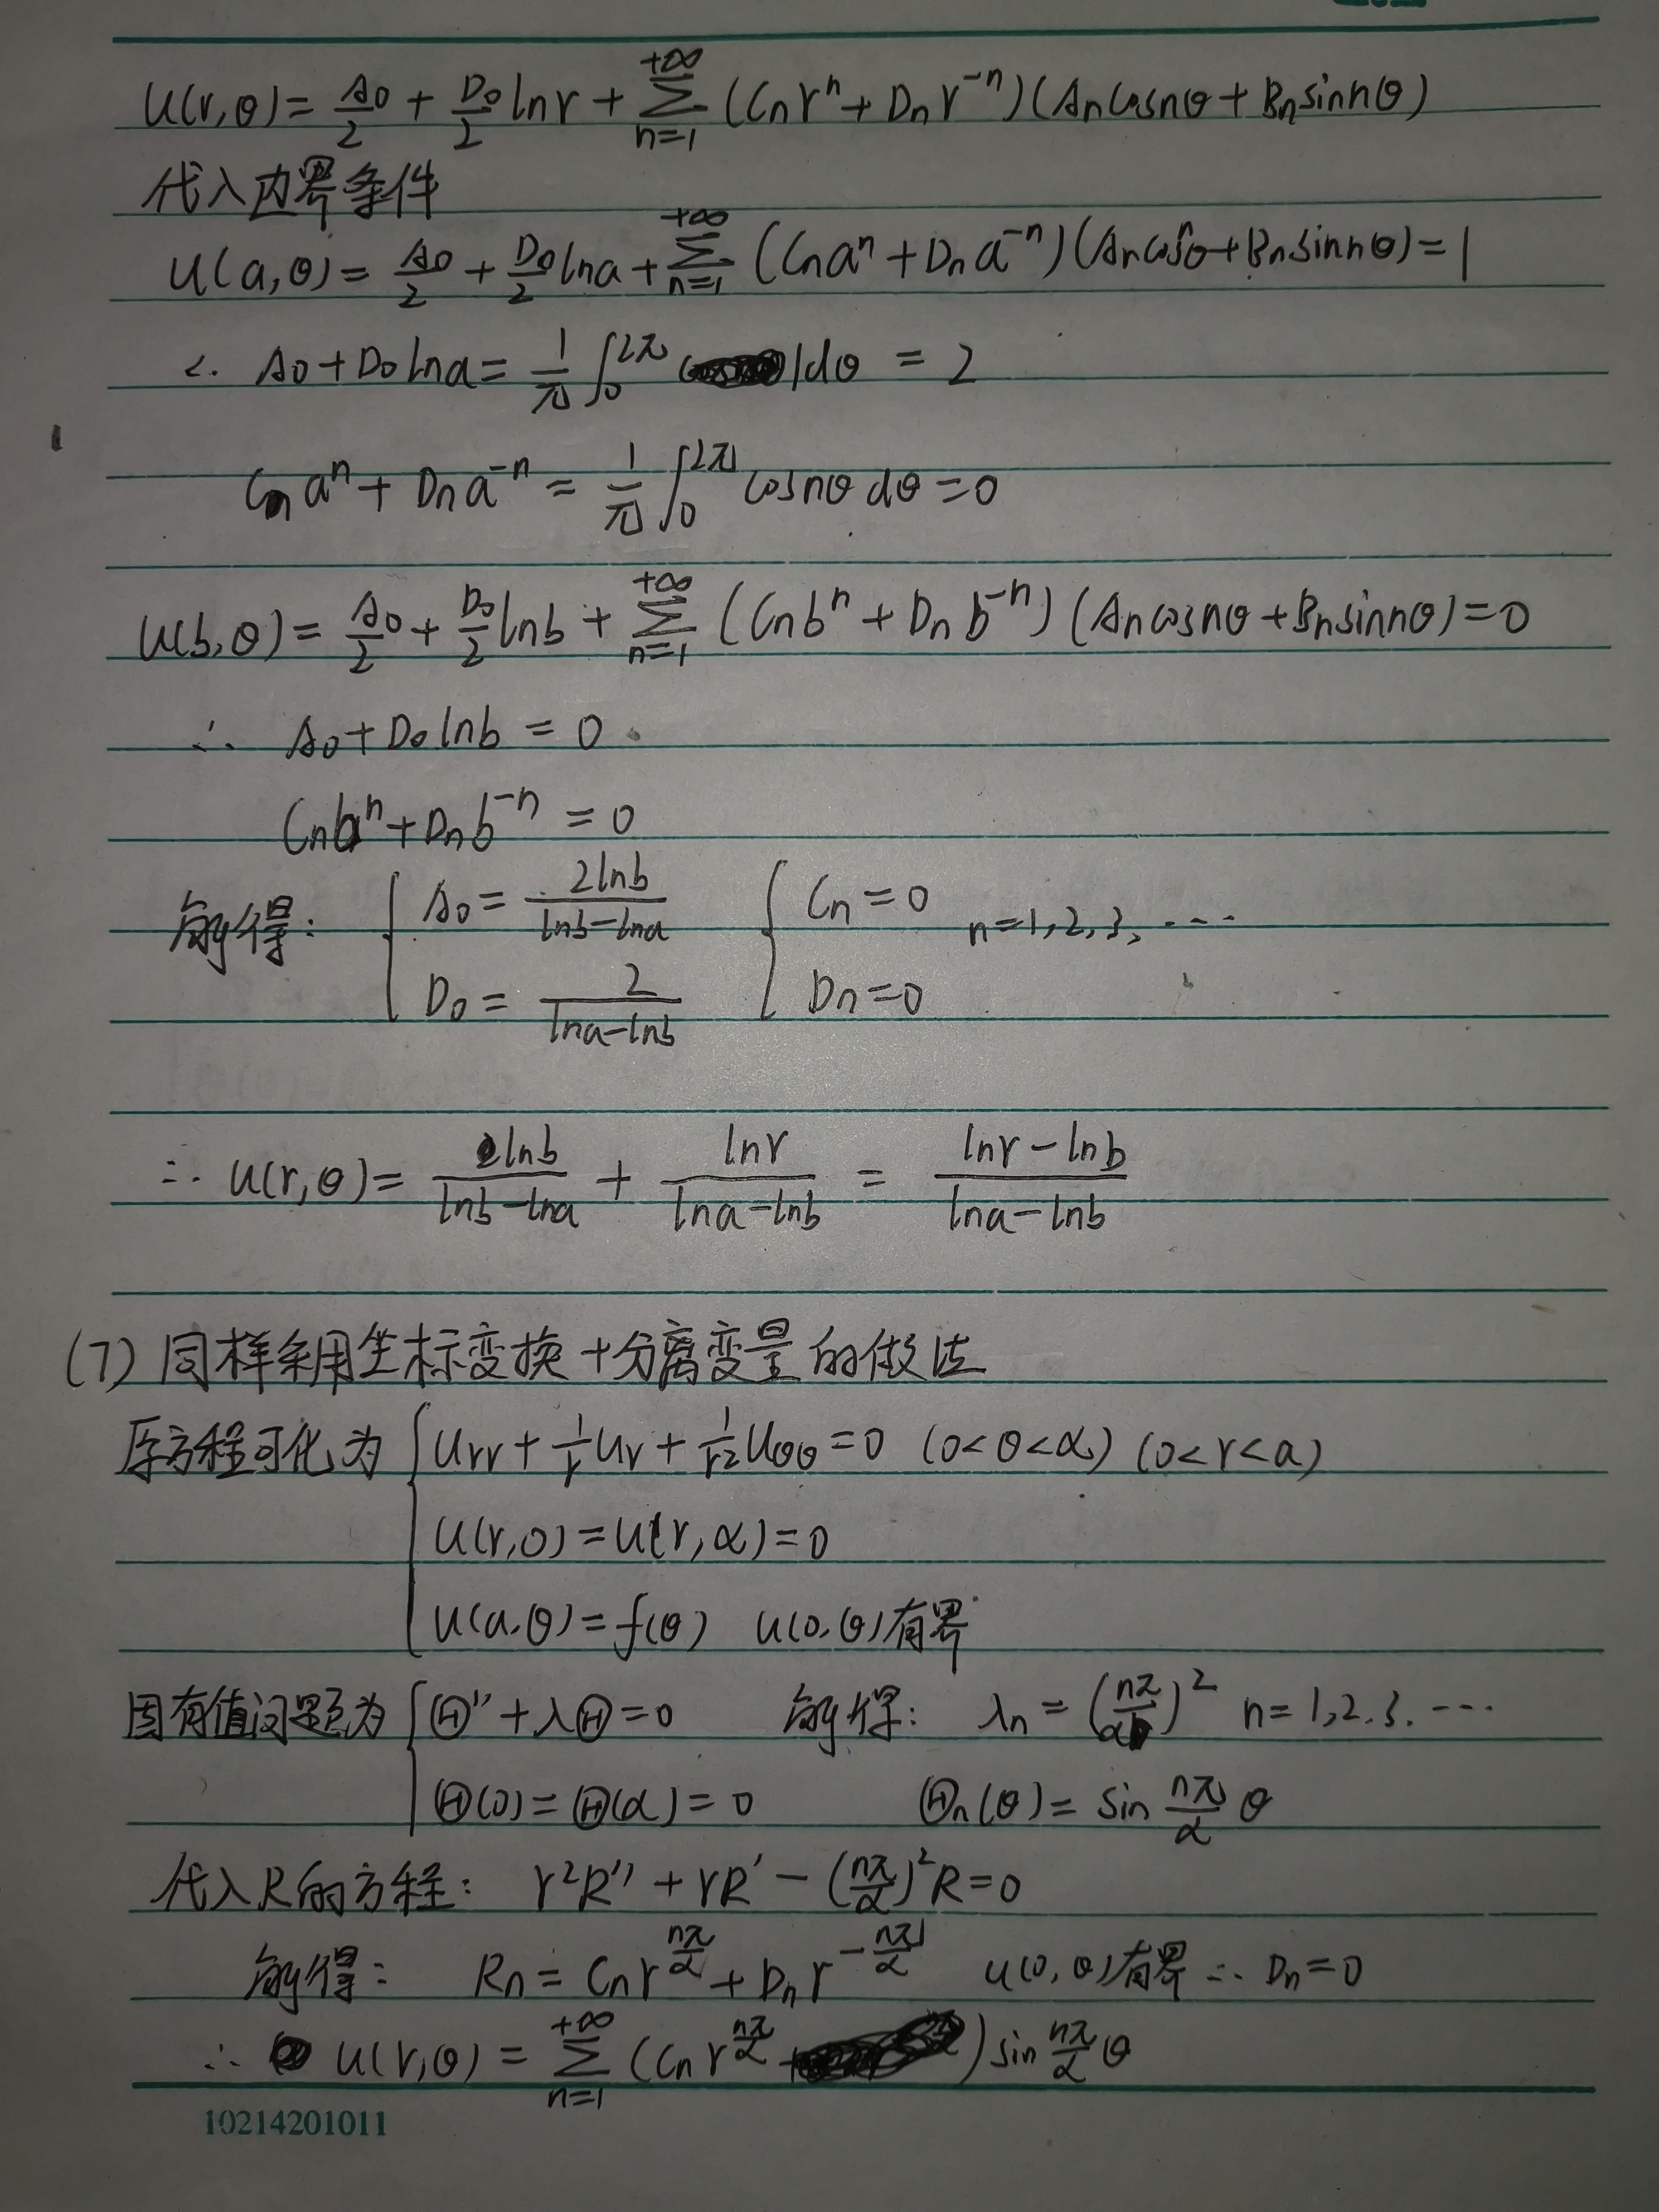 u(r,θ) = A₀/2 + D₀/2 lnr + Σ_{n=1}^{+∞} (Cₙrⁿ + Dₙr⁻ⁿ)(Aₙcosnθ + Bₙsinnθ)
代入边界条件
u(a,θ) = A₀/2 + D₀/2 lna + Σ_{n=1}^{+∞} (Cₙaⁿ + Dₙa⁻ⁿ)(Aₙcosnθ + Bₙsinnθ) = 1
∴ A₀ + D₀lna = 1/π ∫₀^{2π} 1dθ = 2
Cₙaⁿ + Dₙa⁻ⁿ = 1/π ∫₀^{2π} cosnθ dθ = 0
u(b,θ) = A₀/2 + D₀/2 lnb + Σ_{n=1}^{+∞} (Cₙbⁿ + Dₙb⁻ⁿ)(Aₙcosnθ + Bₙsinnθ) = 0
∴ A₀ + D₀lnb = 0
Cₙbⁿ + Dₙb⁻ⁿ = 0
解得: { A₀ = 2lnb/(lnb-lna) { Cₙ = 0 n=1,2,3,…
D₀ = 2/(lna-lnb) Dₙ = 0
∴ u(r,θ) = lnb/(lnb-lna) + lnr/(lna-lnb) = (lnr-lnb)/(lna-lnb)
(7) 同样采用坐标变换+分离变量的做法
原方程可化为 { u_rr + 1/r u_r + 1/r² u_θθ = 0 (0<θ<α) (0<r<a)
u(r,0) = u(r,α) = 0
u(a,θ) = f(θ) u(0,θ)有界
固有值问题为 { Θ'' + λΘ = 0 解得: λₙ = (nπ/α)² n=1,2,3,…
Θ(0) = Θ(α) = 0 Θₙ(θ) = sin nπ/α θ
代入R的方程: r²R'' + rR' - (nπ/α)²R = 0
解得: Rₙ = Cₙr^{nπ/α} + Dₙr^{-nπ/α} u(0,θ)有界 ∴ Dₙ=0
∴ u(r,θ) = Σ_{n=1}^{+∞} (Cₙr^{nπ/α}) sin nπ/α θ
10214201011